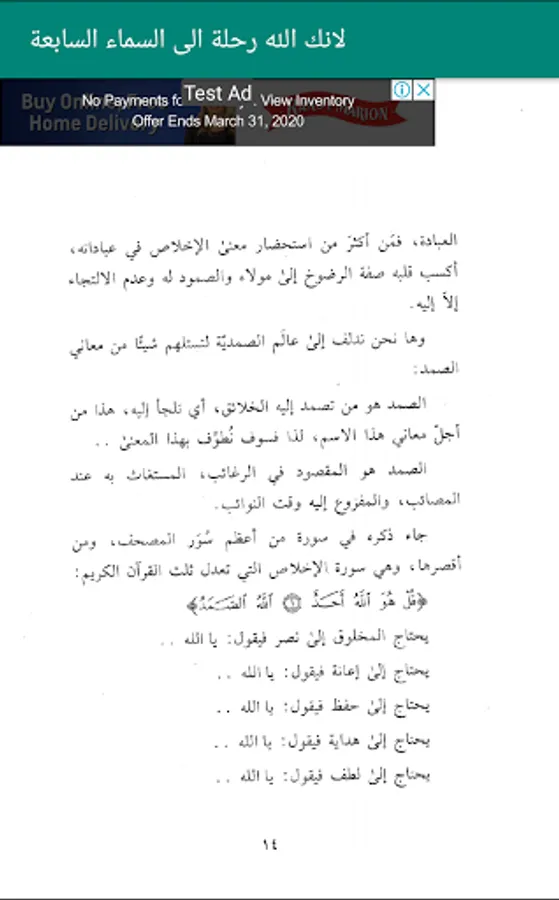 لانك الله رحلة الى السماء السابعة
Buy Online Free
Home Delivery
No Payments fo
Test Ad
. View Inventory
Offer Ends March 31, 2020
العبادة، فمَن أكثرَ من استحضار معنىٰ الإخلاص في عباداته،
أكسب قلبه صفة الرضوخ إلىٰ مولاه والصمود له وعدم الالتجاء
إلاَّ إليه.
وها نحن ندلف إلىٰ عالَم الصمديّة لنستلهم شيئًا من معاني
الصمد:
الصمد هو من تصمد إليه الخلائق، أي تلجأ إليه، هذا من
أجلّ معاني هذا الاسم، لذا فسوف نُطوِّف بهذا المعنىٰ ..
الصمد هو المقصود في الرغائب، المستغاث به عند
المصائب، والمفزوع إليه وقت النوائب.
جاء ذكره في سورة من أعظم سُوَر المصحف، ومن
أقصرها، وهي سورة الإخلاص التي تعدل ثلث القرآن الكريم:
﴿قُلْ هُوَ ٱللَّهُ أَحَدٌ ۝١ ٱللَّهُ ٱلصَّمَدُ﴾
يحتاج المخلوق إلىٰ نصر فيقول: يا الله ..
يحتاج إلىٰ إعانة فيقول: يا الله ..
يحتاج إلىٰ حفظ فيقول: يا الله ..
يحتاج إلىٰ هداية فيقول: يا الله ..
يحتاج إلىٰ لطف فيقول: يا الله ..
١٤